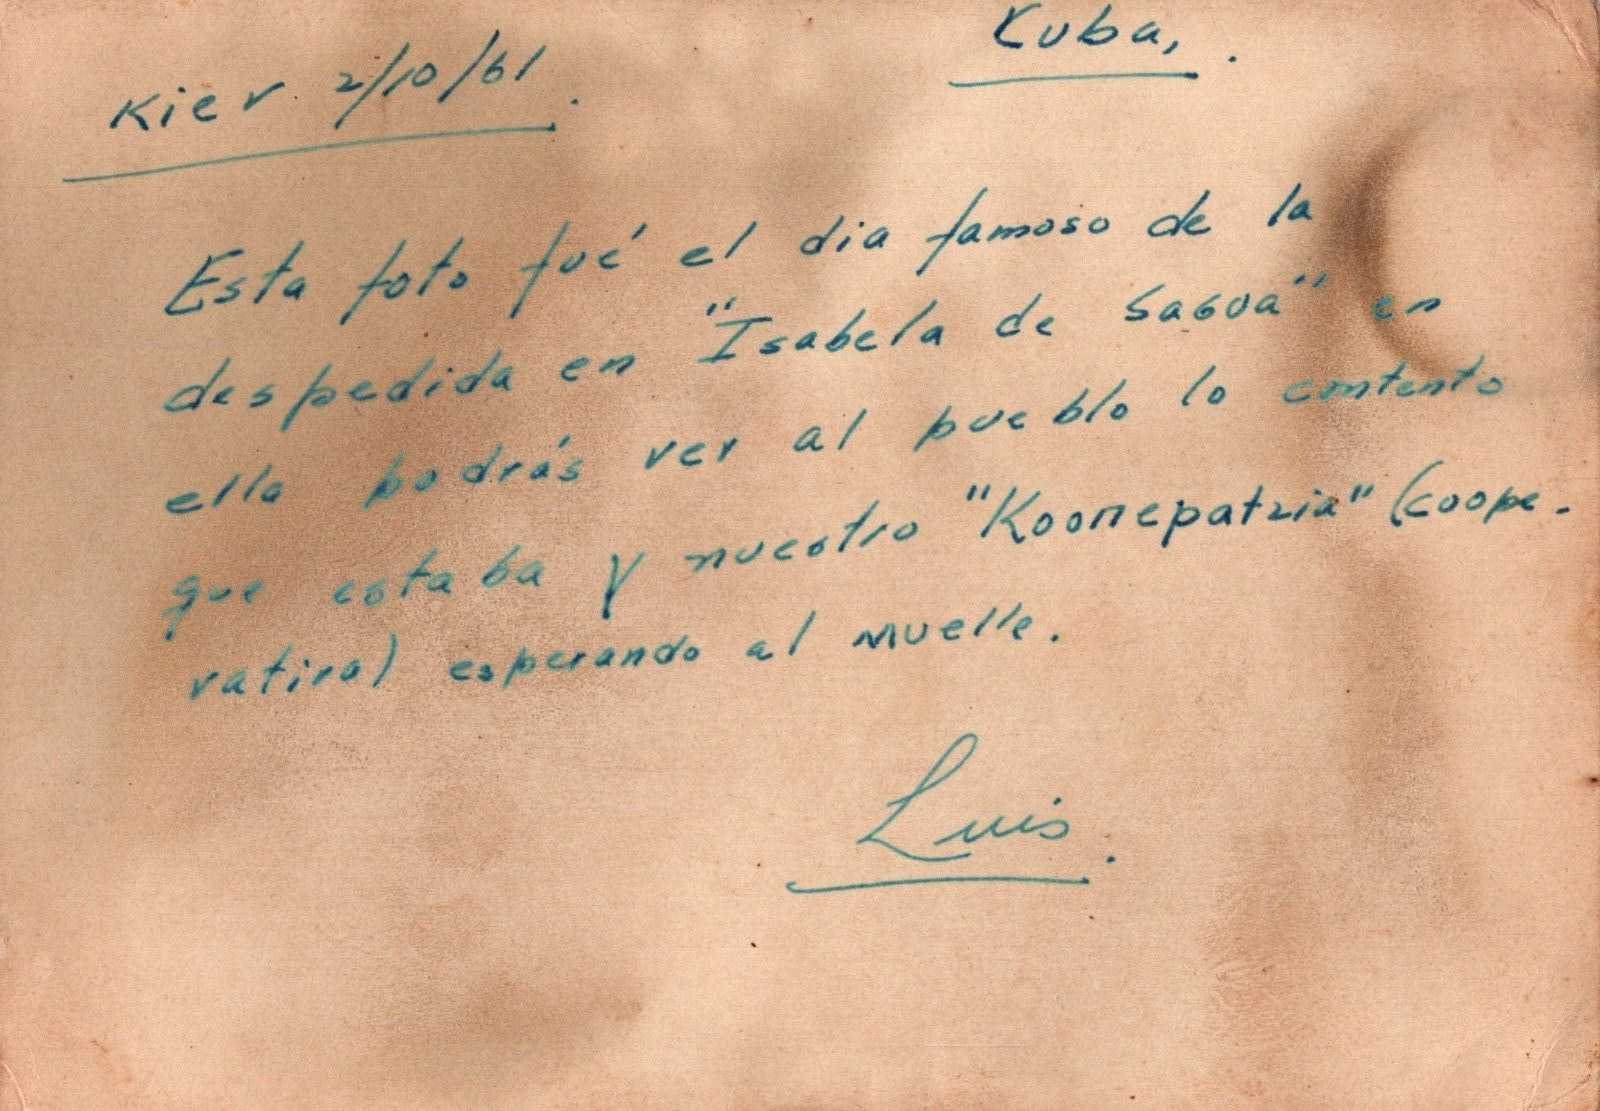 Kuba,.
Kiev 2/10/61.
Esta foto fué el dia famoso de la
despedida en "Isabela de Sagua" en
ella podrás ver al pueblo lo contento
que estaba y nuestro "Kooпepatzia" (coope-
rativa) esperando al muelle.
Luis.